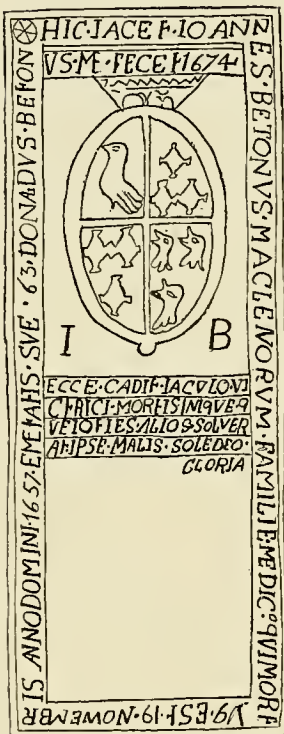 HIC·IACET·IOANN
ES·BETONVS·MACLENORVM·FAMILIE·MEDIC⁹·QVI MORT
V9·EST·19·NOWEMBR
IS ANNODOMINI·1657·ETETATIS·SVE·63·DONALDVS·BETON
VS·ME·FECET1674
I B
ECCE·CADIT·IACVLO·VI
CTRICI·MORTIS INIQVE·Q
VITOTIES·ALIOS·SOLVER
ATIPSE·MALIS·SOLEDEO·
GLORIA